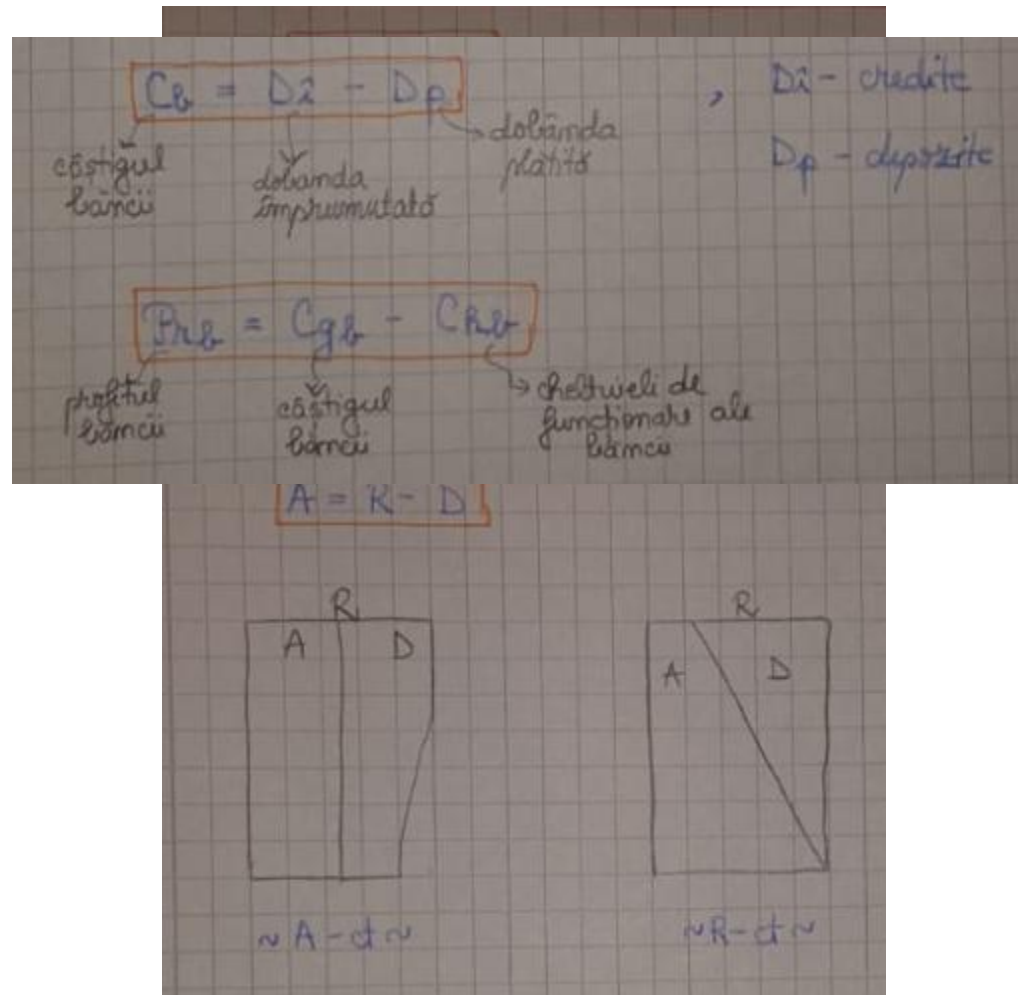 Cb = Dî - Dp , Dî - credite
câștigul băncii
dobanda împrumutată
dobânda plătită
Dp - depozite
Prb = Cgb - Chb
profitul băncii
câștigul băncii
cheltuieli de funcționare ale băncii
A = R - D
R
A D
~ A - ct ~
R
A D
~ R - ct ~